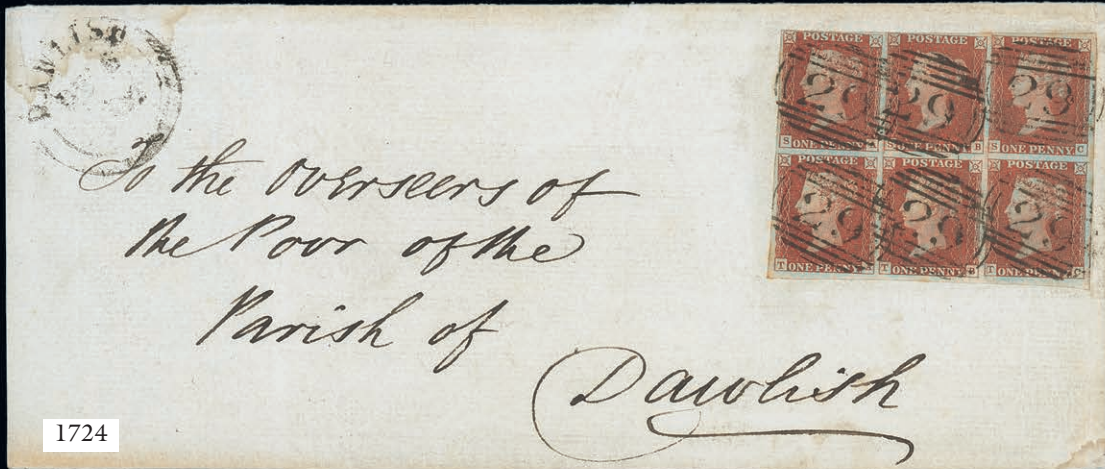 DAWLISH
POSTAGE POSTAGE POSTAGE
29 29 29
S ONE PENNY S ONE PENNY B S ONE PENNY C
POSTAGE POSTAGE POSTAGE
29 29 29
T ONE PENNY T ONE PENNY B T ONE PENNY C
To the Overseers of
the Poor of the
Parish of
Dawlish
1724